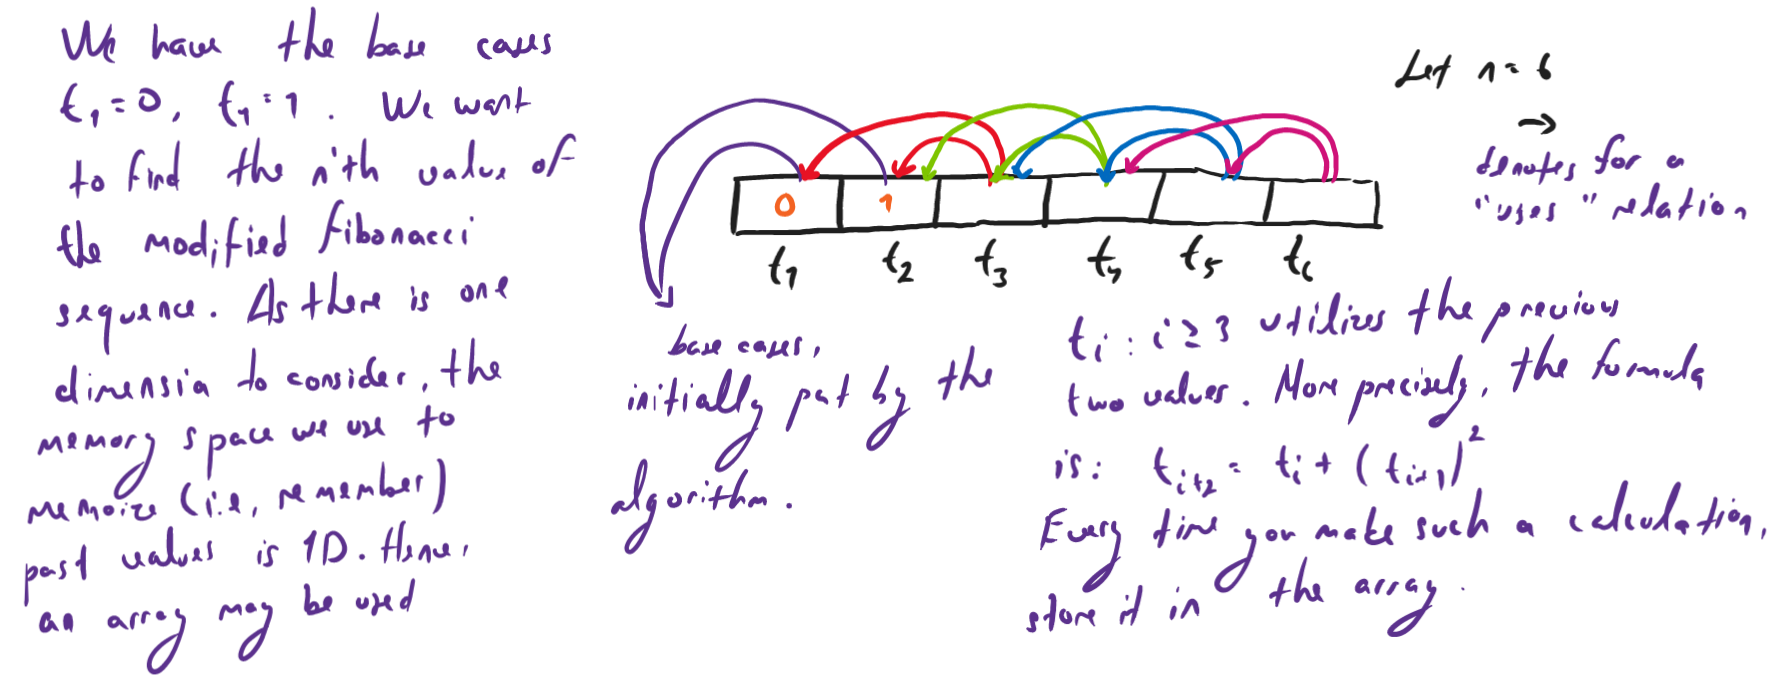 We have the base cases
t₁=0, t₄=1. We want
to find the n'th value of
the modified fibonacci
sequence. As there is one
dimensia to consider, the
memory space we use to
memoize (i.e, remember)
past values is 1D. Hence,
an array may be used
0 1
t₁ t₂ t₃ t₄ t₅ t₆
base cases,
initially put by the
algorithm.
Let n=6
→
denotes for a
"uses" relation
tᵢ : i ≥ 3 utilizes the previous
two values. More precisely, the formula
is: tᵢ₊₂ = tᵢ + (tᵢ₊₁)²
Every time you make such a calculation,
store it in the array.